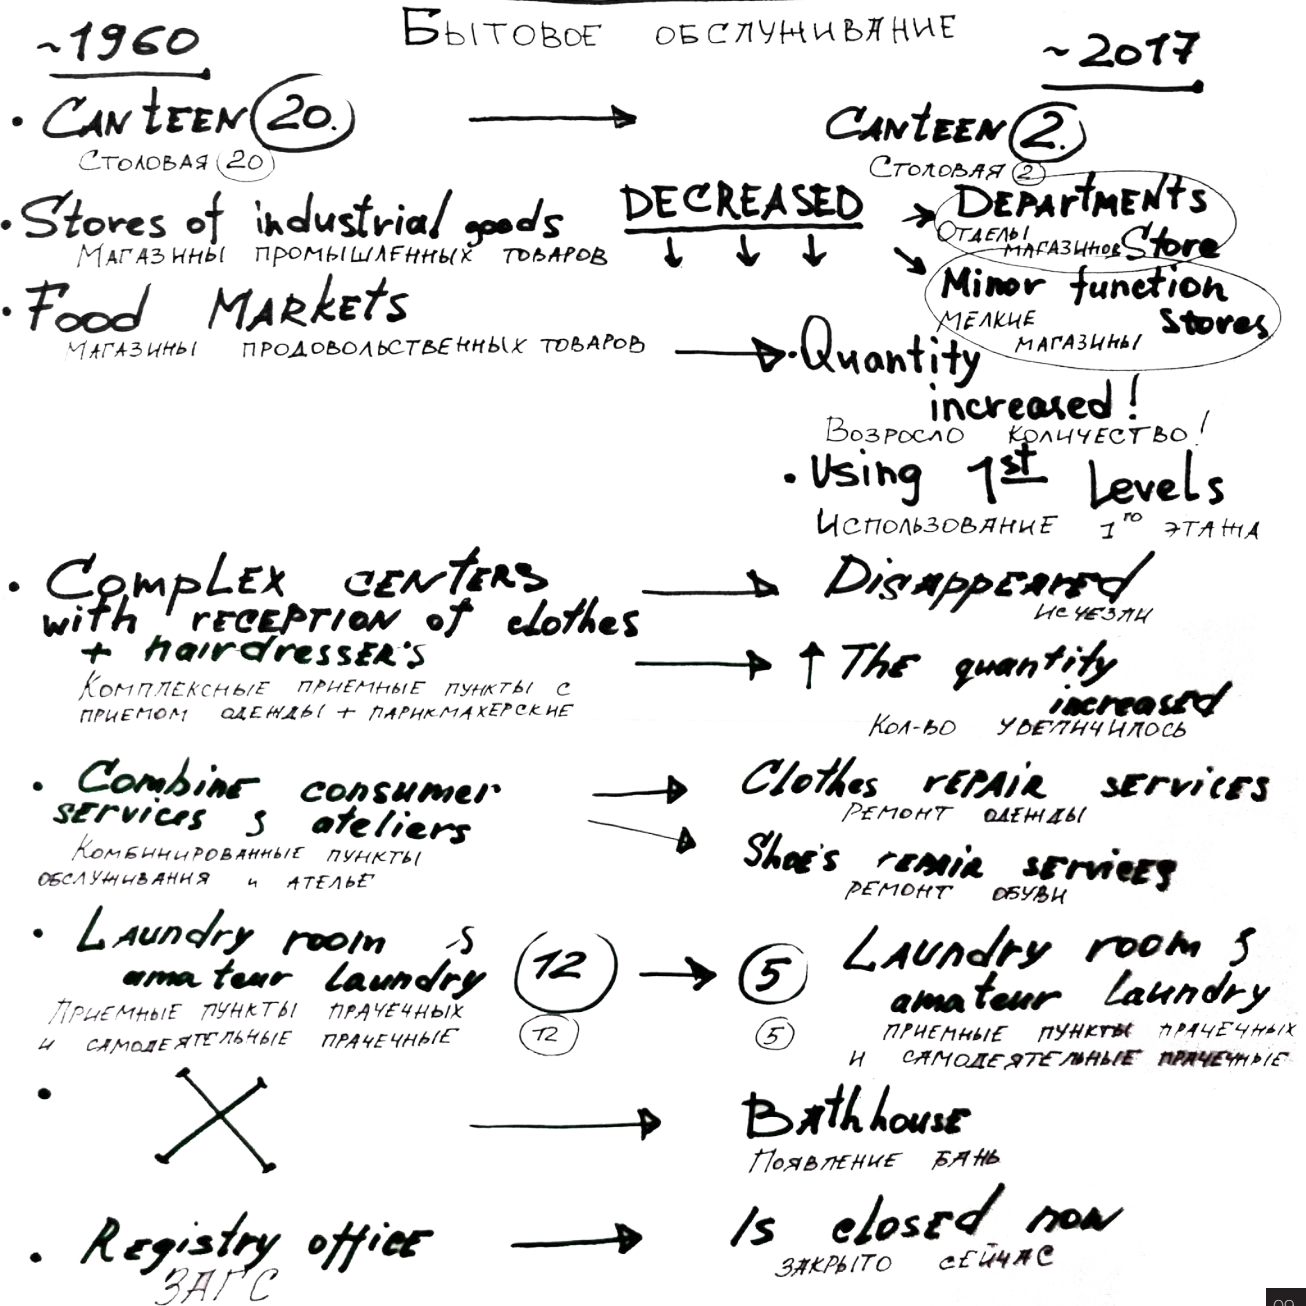 Бытовое обслуживание
~1960
~2017
• Canteen 20.
Столовая 20
Canteen 2.
Столовая 2
• Stores of industrial goods
Магазины промышленных товаров
DECREASED
Departments
Store
Отделы
магазинов
Minor function
stores
мелкие
магазины
• Food Markets
магазины продовольственных товаров
• Quantity
increased!
Возросло количество!
• Using 1st Levels
Использование 1го этажа
• Complex centers
with reception of clothes
+ hairdresser's
Комплексные приемные пункты с
приемом одежды + парикмахерские
Disappeared
исчезли
↑ The quantity
increased
Кол-во увеличилось
• Combine consumer
services & ateliers
Комбинированные пункты
обслуживания и ателье
Clothes repair services
ремонт одежды
Shoe's repair services
ремонт обуви
• Laundry room &
amateur laundry
12
Приемные пункты прачечных
и самодеятельные прачечные
12
5
5
Laundry room &
amateur laundry
приемные пункты прачечных
и самодеятельные прачечные
•
Bathhouse
Появление бань
• Registry office
ЗАГС
Is closed now
закрыто сейчас